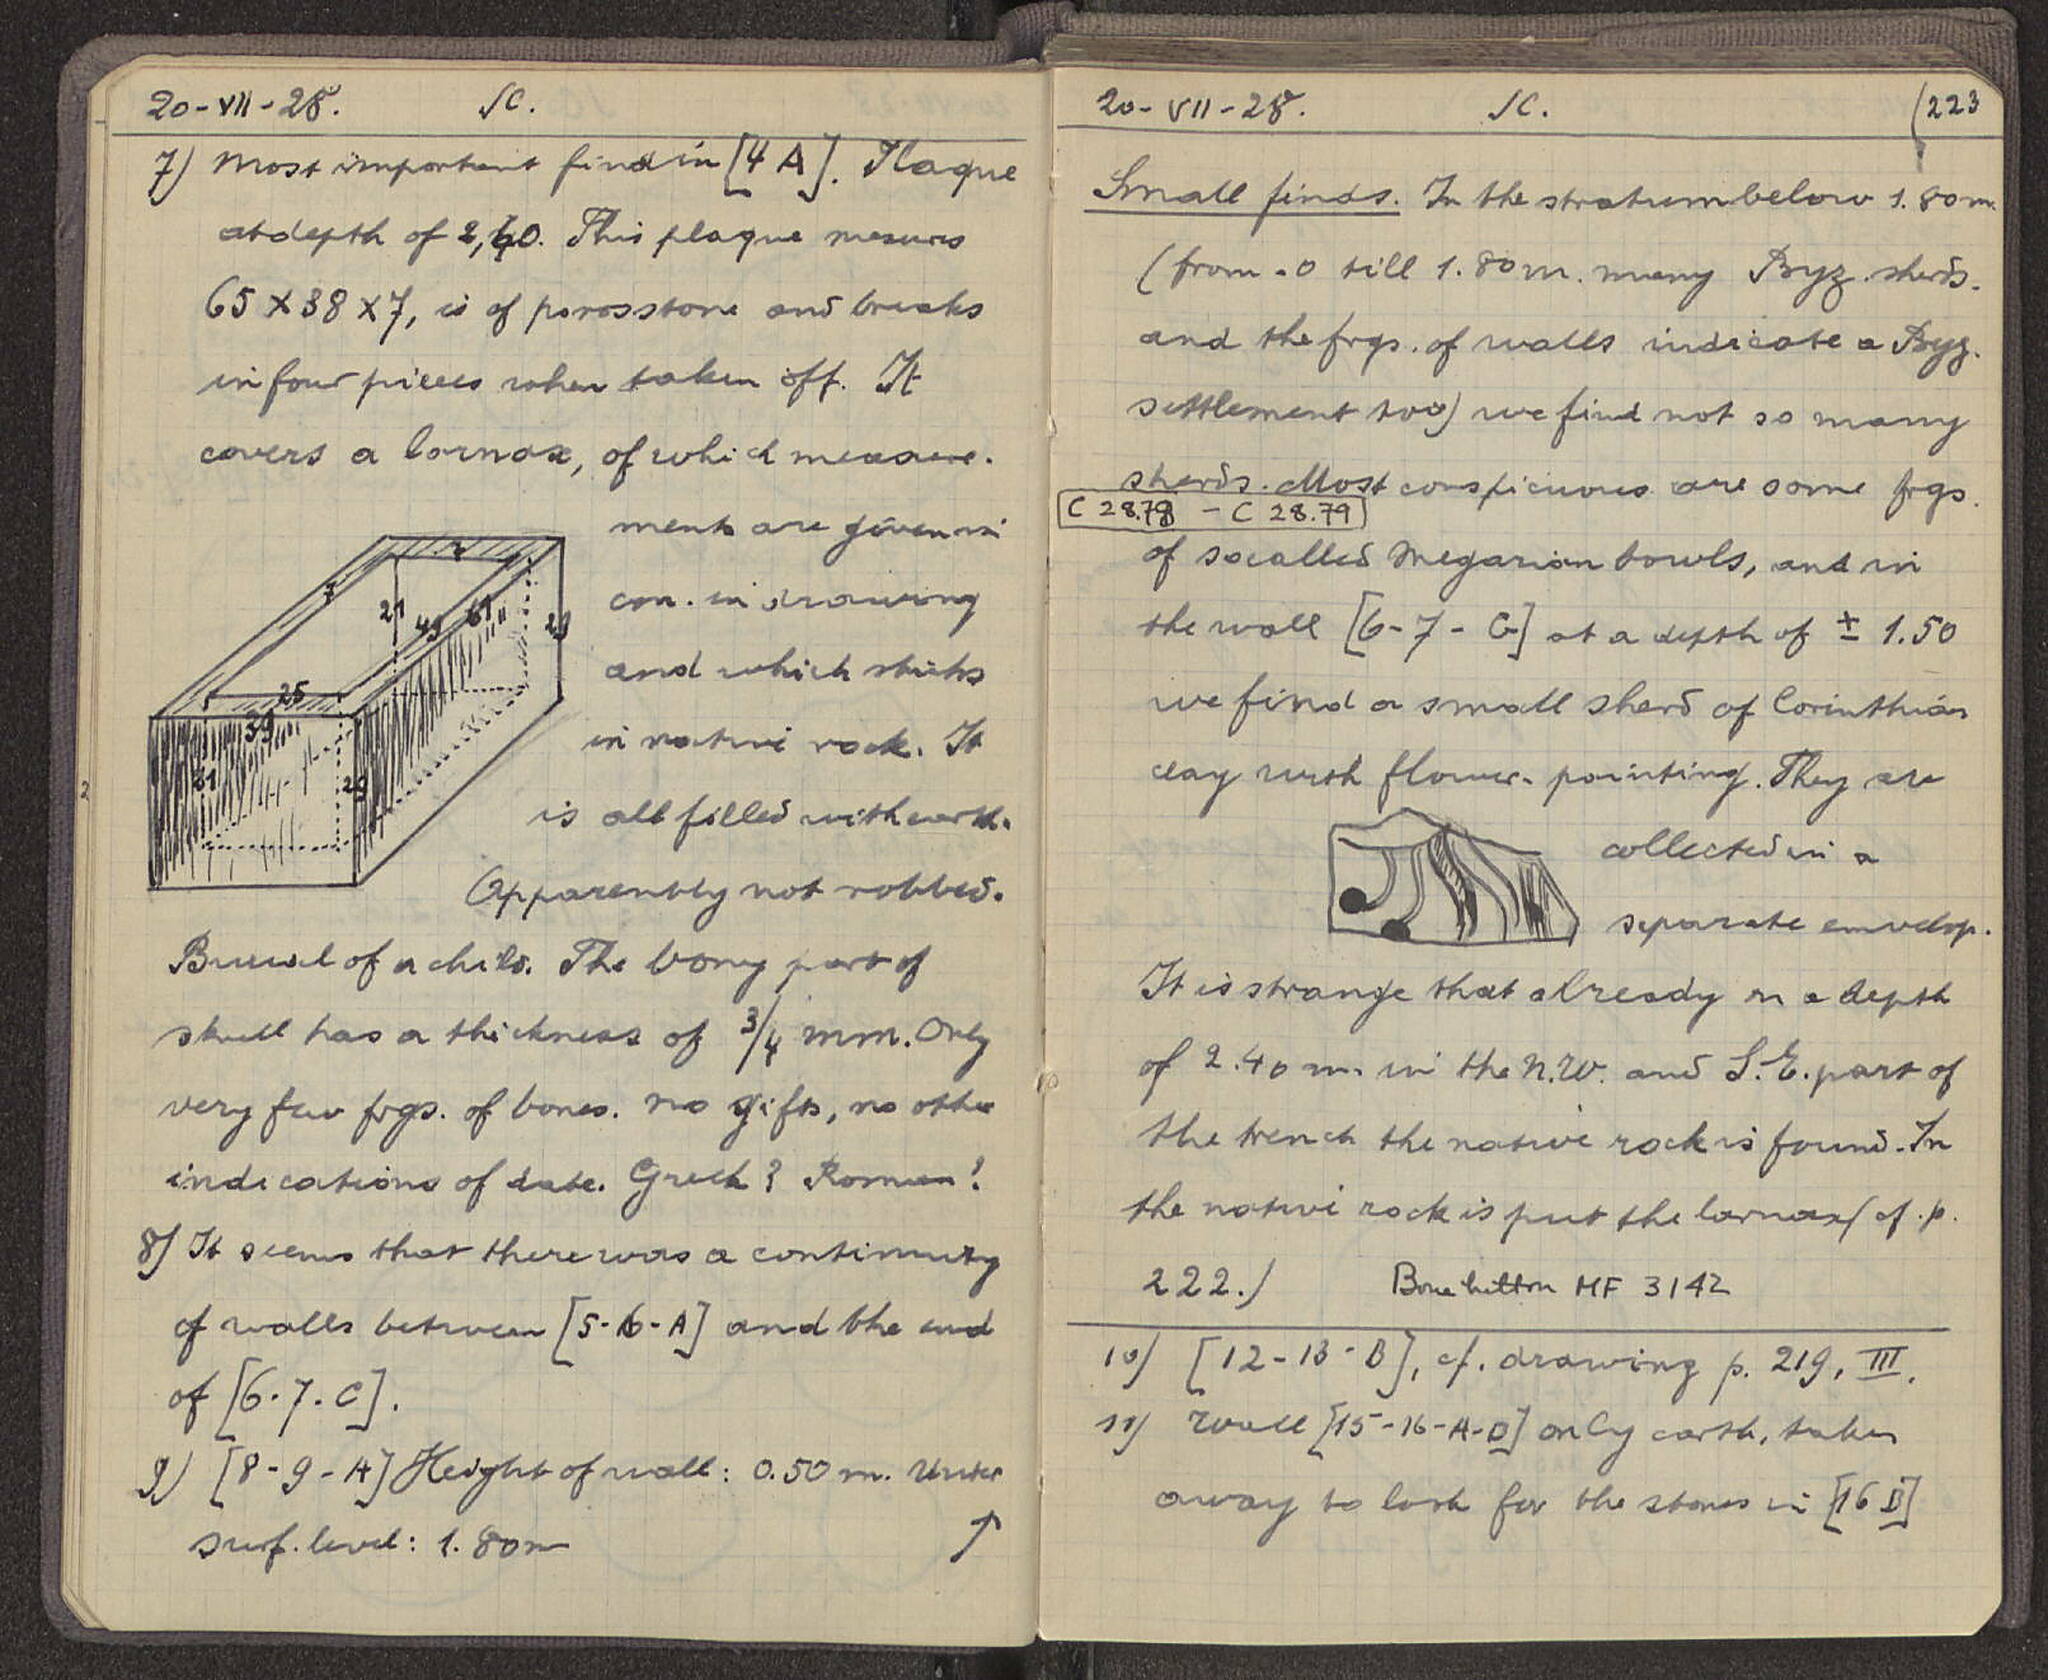 20-VII-28. SC.
7) Most important find in [4 A]. Plaque
at depth of 2,40. This plaque mesures
65 X 38 X 7, is of porosstone and breaks
in four pieces when taken off. It
covers a larnax, of which measure-
ments are given in
cm. in drawing
and which sticks
in native rock. It
is all filled with earth.
Apparently not robbed.
7
7
21
49
61
29
25
39
21
29
Buriel of a child. The bony part of
skull has a thickness of 3/4 mm. Only
very few frgs. of bones. No gifts, no other
indications of date. Greek? Roman?
8) It seems that there was a continuity
of walls between [5-6-A] and the end
of [6-7-C].
9) [8-9-A] Height of wall: 0.50 m. Under
surf. level: 1.80m ↑
20-VII-28. SC. (223
Small finds. In the stratum below 1.80m.
(from -0 till 1.80m. many Byz. sherds.
and the frgs. of walls indicate a Byz.
settlement too) we find not so many
sherds. Most conspicuous are some frgs.
C 28.78 - C 28.79
of socalled Megarian bowls, and in
the wall [6-7-C] at a depth of ± 1.50
we find a small sherd of Corinthian
clay with flower-painting. They are
collected in a
separate envelop.
It is strange that already in a depth
of 2.40 m. in the N.W. and S.E. part of
the trench the native rock is found. In
the native rock is put the larnax (cf. p.
222.) Bone button MF 3142
10) [12-13-B], cf. drawing p. 219, III.
11) Wall [15-16-A-D] only earth, taken
away to look for the stones in [16 D]